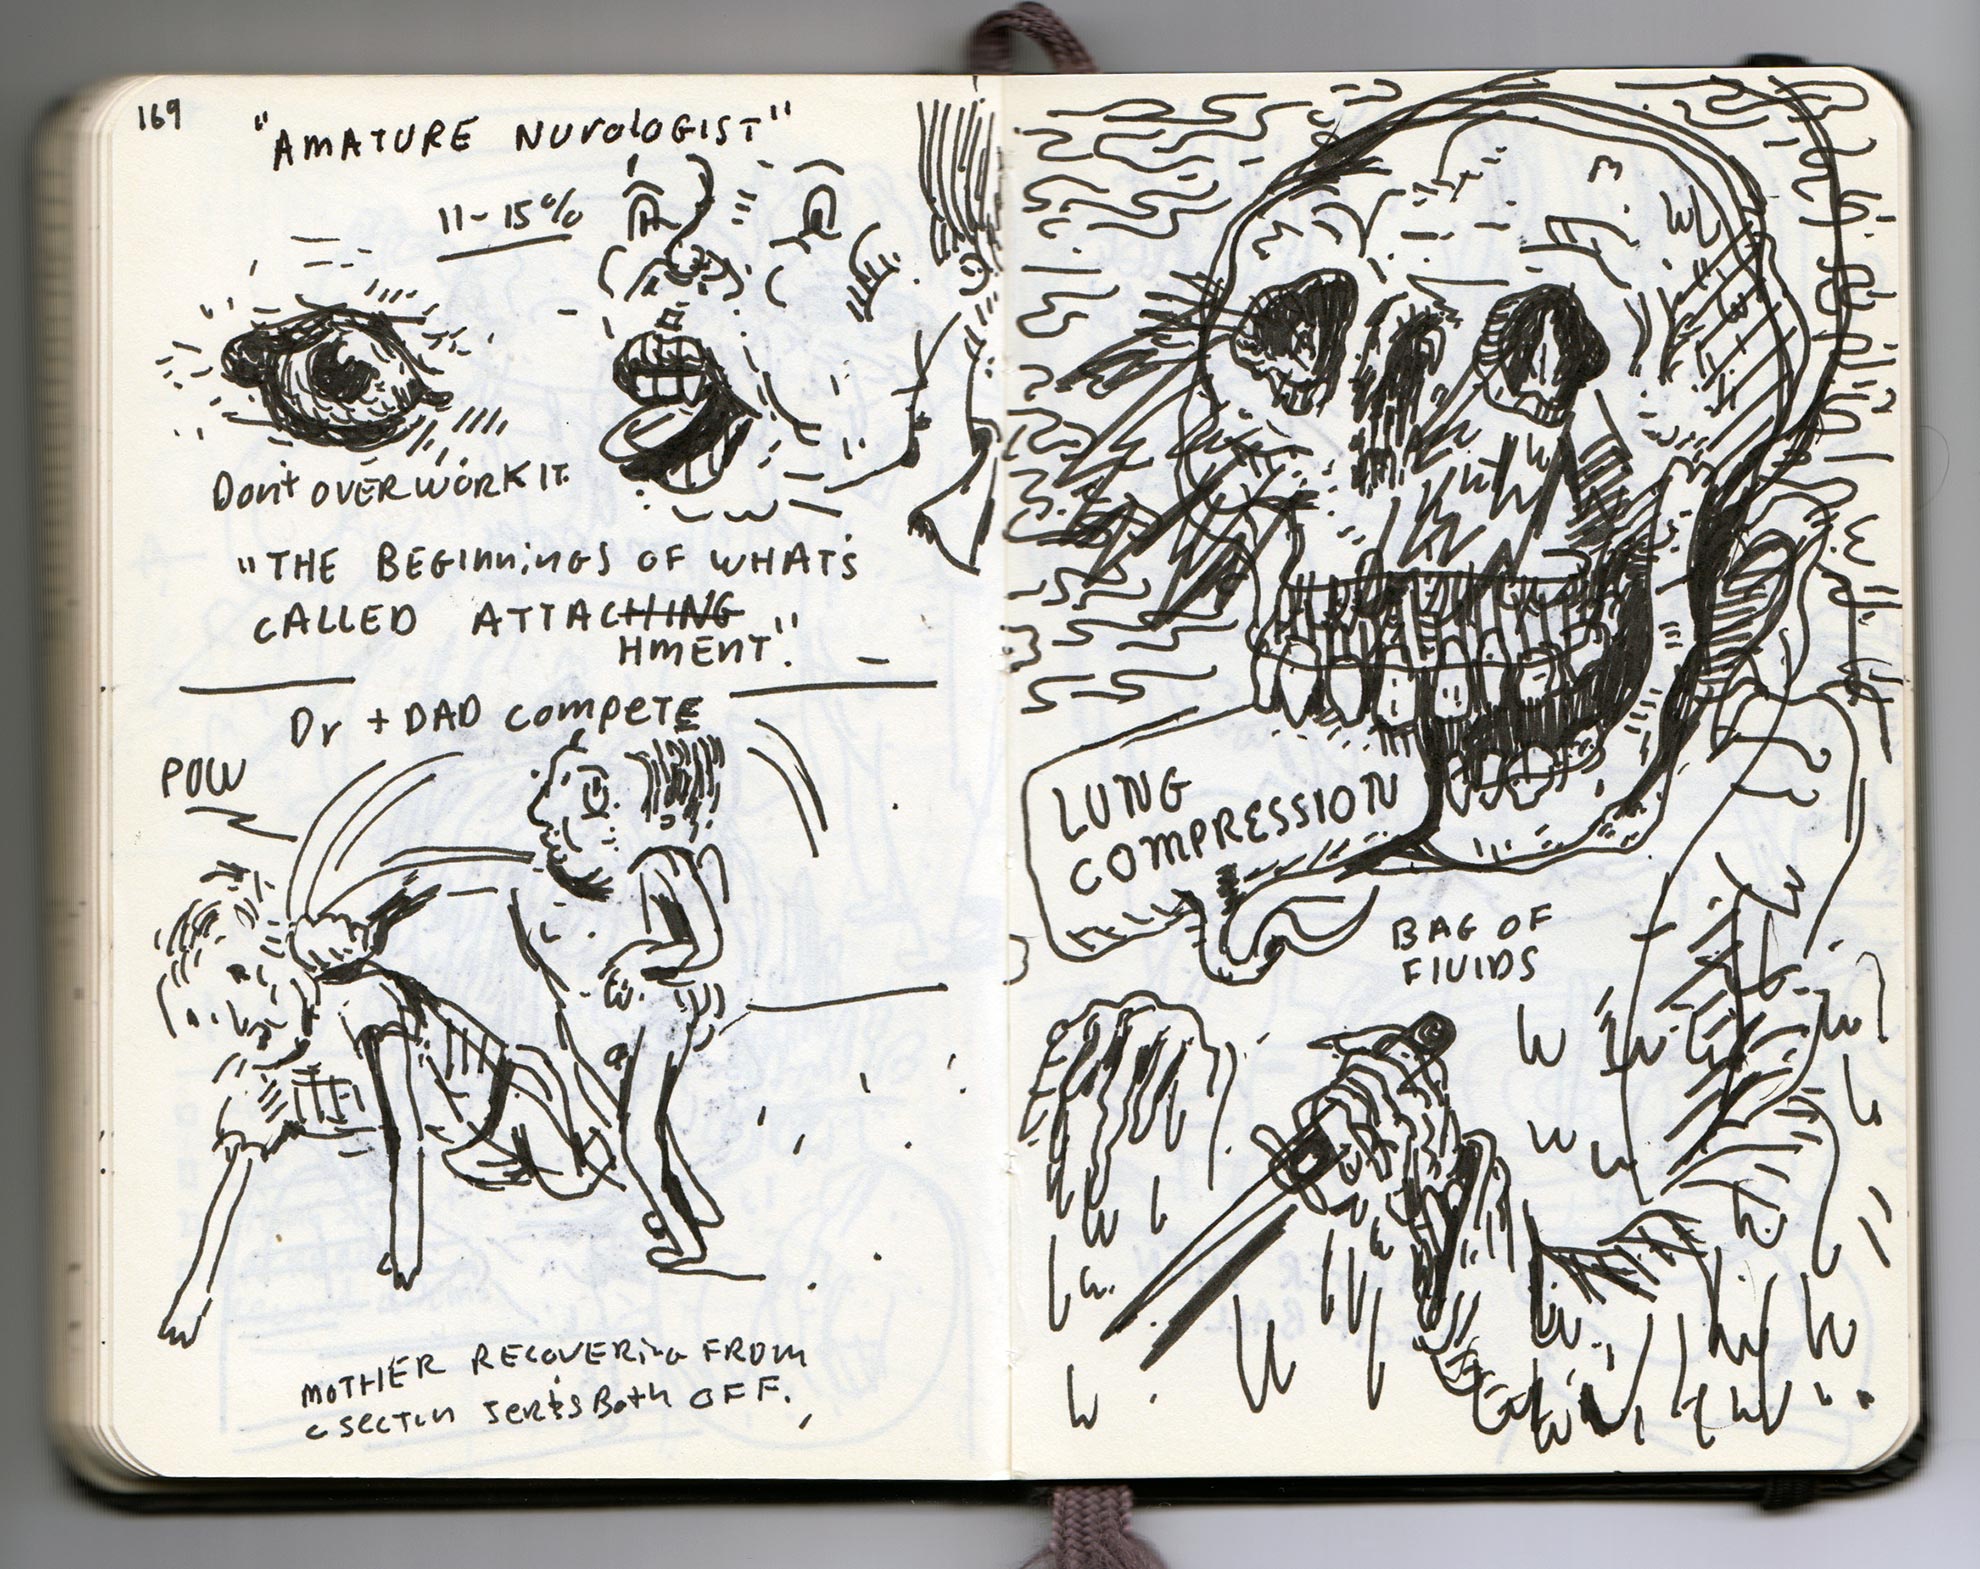 169
"AMATURE NUrolOGIST"
11-15%
Don't OVERWORK IT.
"THE BEGInninGS OF WHAT'S
CALLED ATTACHING
HMENT".
Dr + DAD compETE
POW
MOTHER RECOVERinG FROM
C SECTIn SERKS BOTH OFF.
LUNG
COMPRESSION
BAG OF
FlUIDS